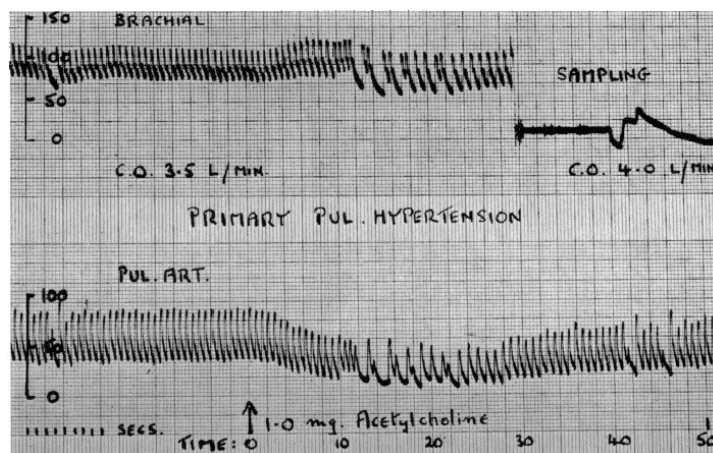 150
BRACHIAL
100
50
0
SAMPLING
C.O. 3.5 L/MIN.
C.O. 4.0 L/MIN
PRIMARY PUL. HYPERTENSION
PUL. ART.
100
50
0
SECS.
1.0 mg. Acetylcholine
TIME: 0 10 20 30 40 50